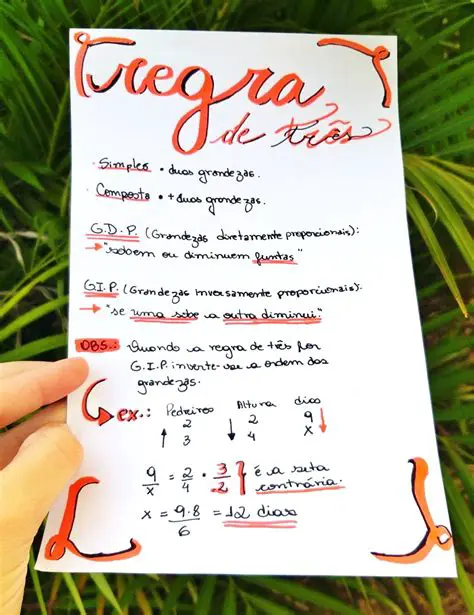 regra
de três
· Simples · duas grandezas.
· Composta · + duas grandezas.
G.D.P. (Grandezas diretamente proporcionais):
→ "sobem ou diminuem juntas"
G.I.P. (Grandezas inversamente proporcionais):
→ "se uma sobe a outra diminui."
OBS.: Quando a regra de três for
G.I.P. inverte-se a ordem das
grandezas.
ex.: Pedreiros Altura dias
↑ 2 ↓ 2 9 ↓
3 4 x
9/x = 2/4 · 3/2 ↑ é a seta
contrária.
x = 9·8/6 = 12 dias